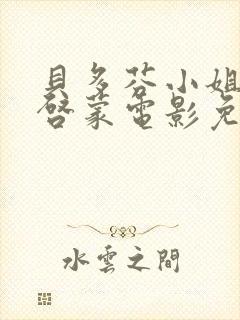 貝多芬小姐
啓蒙電影免
水雲之間